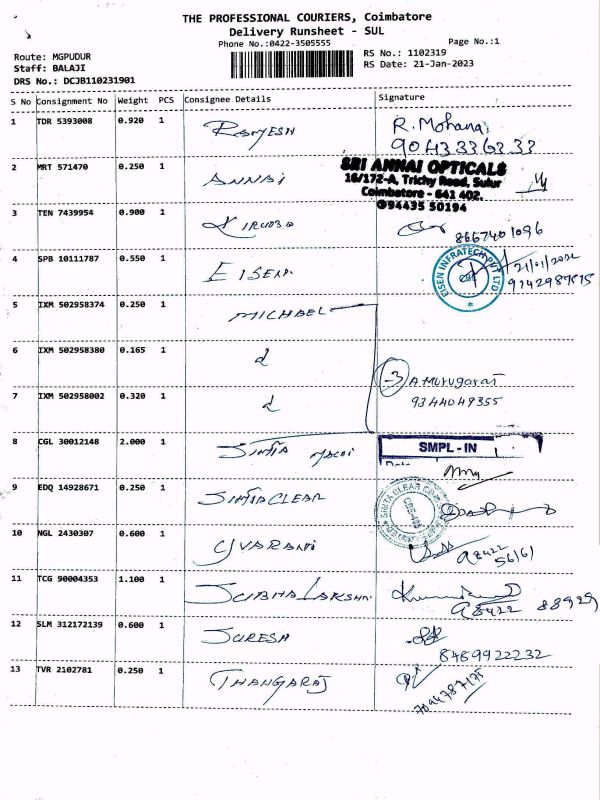 THE PROFESSIONAL COURIERS, Coimbatore
Delivery Runsheet - SUL
Phone No.:0422-3505555
Page No.:1
Route: MGPUDUR
RS No.: 1102319
Staff: BALAJI
RS Date: 21-Jan-2023
DRS No.: DCJB110231901
S No Consignment No Weight PCS Consignee Details Signature
1 TDR 5393008 0.920 1 RAMYESH R. Mohana
9043336333
2 MRT 571470 0.250 1 ANNAI
SRI ANNAI OPTICALS
16/172-A, Trichy Road, Sulur
Coimbatore - 641 402.
94435 50194
3 TEN 7439954 0.900 1 KIRUBA 8667401096
4 SPB 10111787 0.550 1 EISEN
EISEN INFRATECH PVT LTD
21/01/2022
5 IXM 502958374 0.250 1 MICHAEL
6 IXM 502958380 0.165 1 d
7 IXM 502958002 0.320 1 d
3 A Murugaraj
9344049355
8 CGL 30012148 2.000 1 SIMTA
SMPL - IN
9 EDQ 14928671 0.250 1 SIMTA CLEAR
SIMTA CLEAR
10 NGL 2430307 0.600 1 YUVARANI
98422
56161
11 TCG 90004353 1.100 1 SUBHA LAKSHMI
98422 88929
12 SLM 312172139 0.600 1 SURESH
8489922232
13 TVR 2102781 0.250 1 THANGARAJ
7094787175